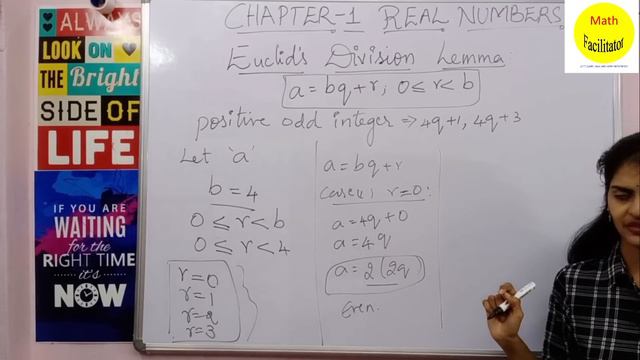 ALWAYS
LOOK ON
THE Bright
SIDE OF
LIFE
IF YOU ARE
WAITING
for the
RIGHT TIME
it's
NOW
CHAPTER-1 REAL NUMBERS
Euclid's Division Lemma
a = bq + r, 0 ≤ r < b
positive odd integer ⇒ 4q+1, 4q+3
Let 'a'
b = 4
0 ≤ r < b
0 ≤ r < 4
r = 0
r = 1
r = 2
r = 3
a = bq + r
Case i, r = 0:
a = 4q + 0
a = 4q
a = 2(2q)
Even.
Math
Facilitator